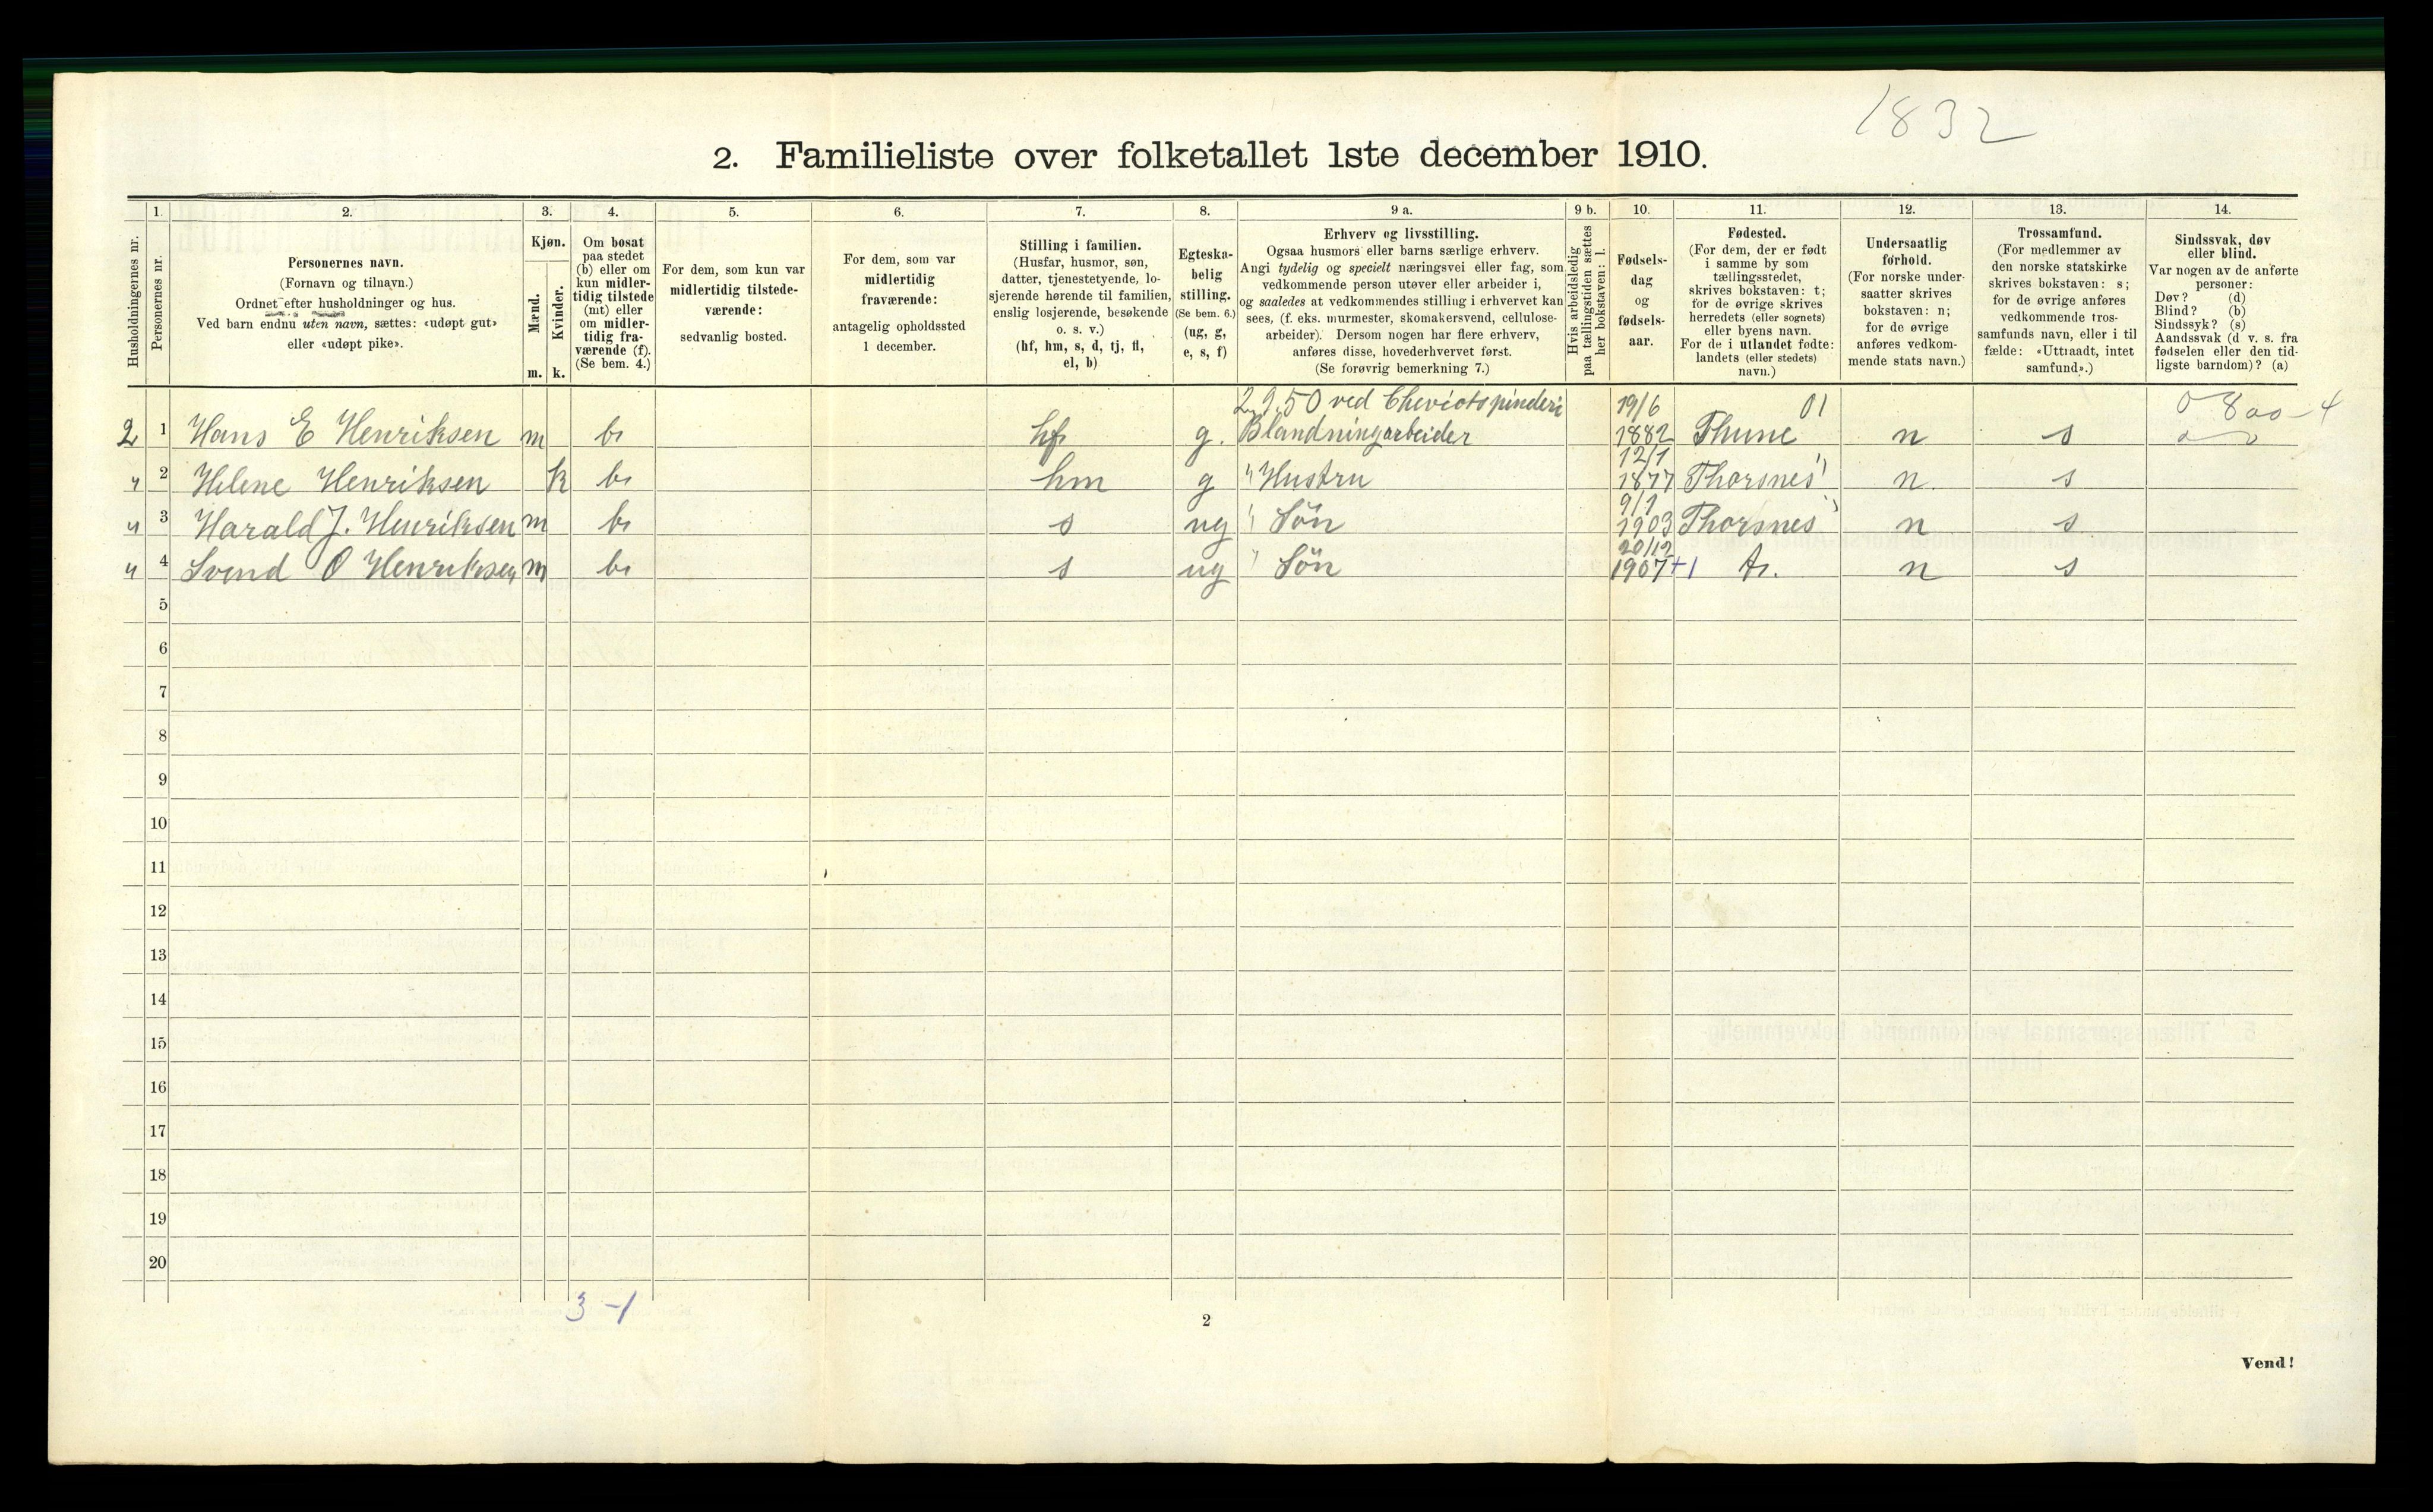 1832
2. Familieliste over folketallet 1ste december 1910.
1. 2. 3. 4. 5. 6. 7. 8. 9 a. 9 b. 10. 11. 12. 13. 14.
Husholdningernes nr.
Personernes nr.
Personernes navn.
(Fornavn og tilnavn.)
Ordnet efter husholdninger og hus.
Ved barn endnu uten navn, sættes: «udøpt gut»
eller «udøpt pike».
Kjøn.
Mænd.
Kvinder.
m. k.
Om bosat
paa stedet
(b) eller om
kun midler-
tidig tilstede
(mt) eller
om midler-
tidig fra-
værende (f).
(Se bem. 4.)
For dem, som kun var
midlertidig tilstede-
værende:
sedvanlig bosted.
For dem, som var
midlertidig
fraværende:
antagelig opholdssted
1 december.
Stilling i familien.
(Husfar, husmor, søn,
datter, tjenestetyende, lo-
sjerende hørende til familien,
enslig losjerende, besøkende
o. s. v.)
(hf, hm, s, d, tj, fl,
el, b)
Egteska-
belig
stilling.
(Se bem. 6.)
(ug, g,
e, s, f)
Erhverv og livsstilling.
Ogsaa husmors eller barns særlige erhverv.
Angi tydelig og specielt næringsvei eller fag, som
vedkommende person utøver eller arbeider i,
og saaledes at vedkommendes stilling i erhvervet kan
sees, (f. eks. murmester, skomakersvend, cellulose-
arbeider). Dersom nogen har flere erhverv,
anføres disse, hovederhvervet først.
(Se forøvrig bemerkning 7.)
Hvis arbeidsledig
paa tællingstiden sættes
her bokstaven: l.
Fødsels-
dag
og
fødsels-
aar.
Fødested.
(For dem, der er født
i samme by som
tællingsstedet,
skrives bokstaven: t;
for de øvrige skrives
herredets (eller sognets)
eller byens navn.
For de i utlandet fødte:
landets (eller stedets)
navn.)
Undersaatlig
forhold.
(For norske under-
saatter skrives
bokstaven: n;
for de øvrige
anføres vedkom-
mende stats navn.)
Trossamfund.
(For medlemmer av
den norske statskirke
skrives bokstaven: s;
for de øvrige anføres
vedkommende tros-
samfunds navn, eller i til
fælde: «Uttraadt, intet
samfund».)
Sindssvak, døv
eller blind.
Var nogen av de anførte
personer:
Døv? (d)
Blind? (b)
Sindssyk? (s)
Aandssvak (d v. s. fra
fødselen eller den tid-
ligste barndom)? (a)
ved Cheviotspinderi 19/6 01 0 800-4
2 1 Hans E Henriksen m b. hf g. Blandningarbeider 1882 Thune n s
12/1
" 2 Helene Henriksen k b. hm g " Hustru 1877 Thorsnes n. s
9/1
" 3 Harald J. Henriksen m b. s ug " Søn 1903 Thorsnes n s
20/12
" 4 Svend O Henriksen m b. s ug " Søn 1907 +1 t. n s
5
6
7
8
9
10
11
12
13
14
15
16
17
18
19
20
3 -1
2
Vend!